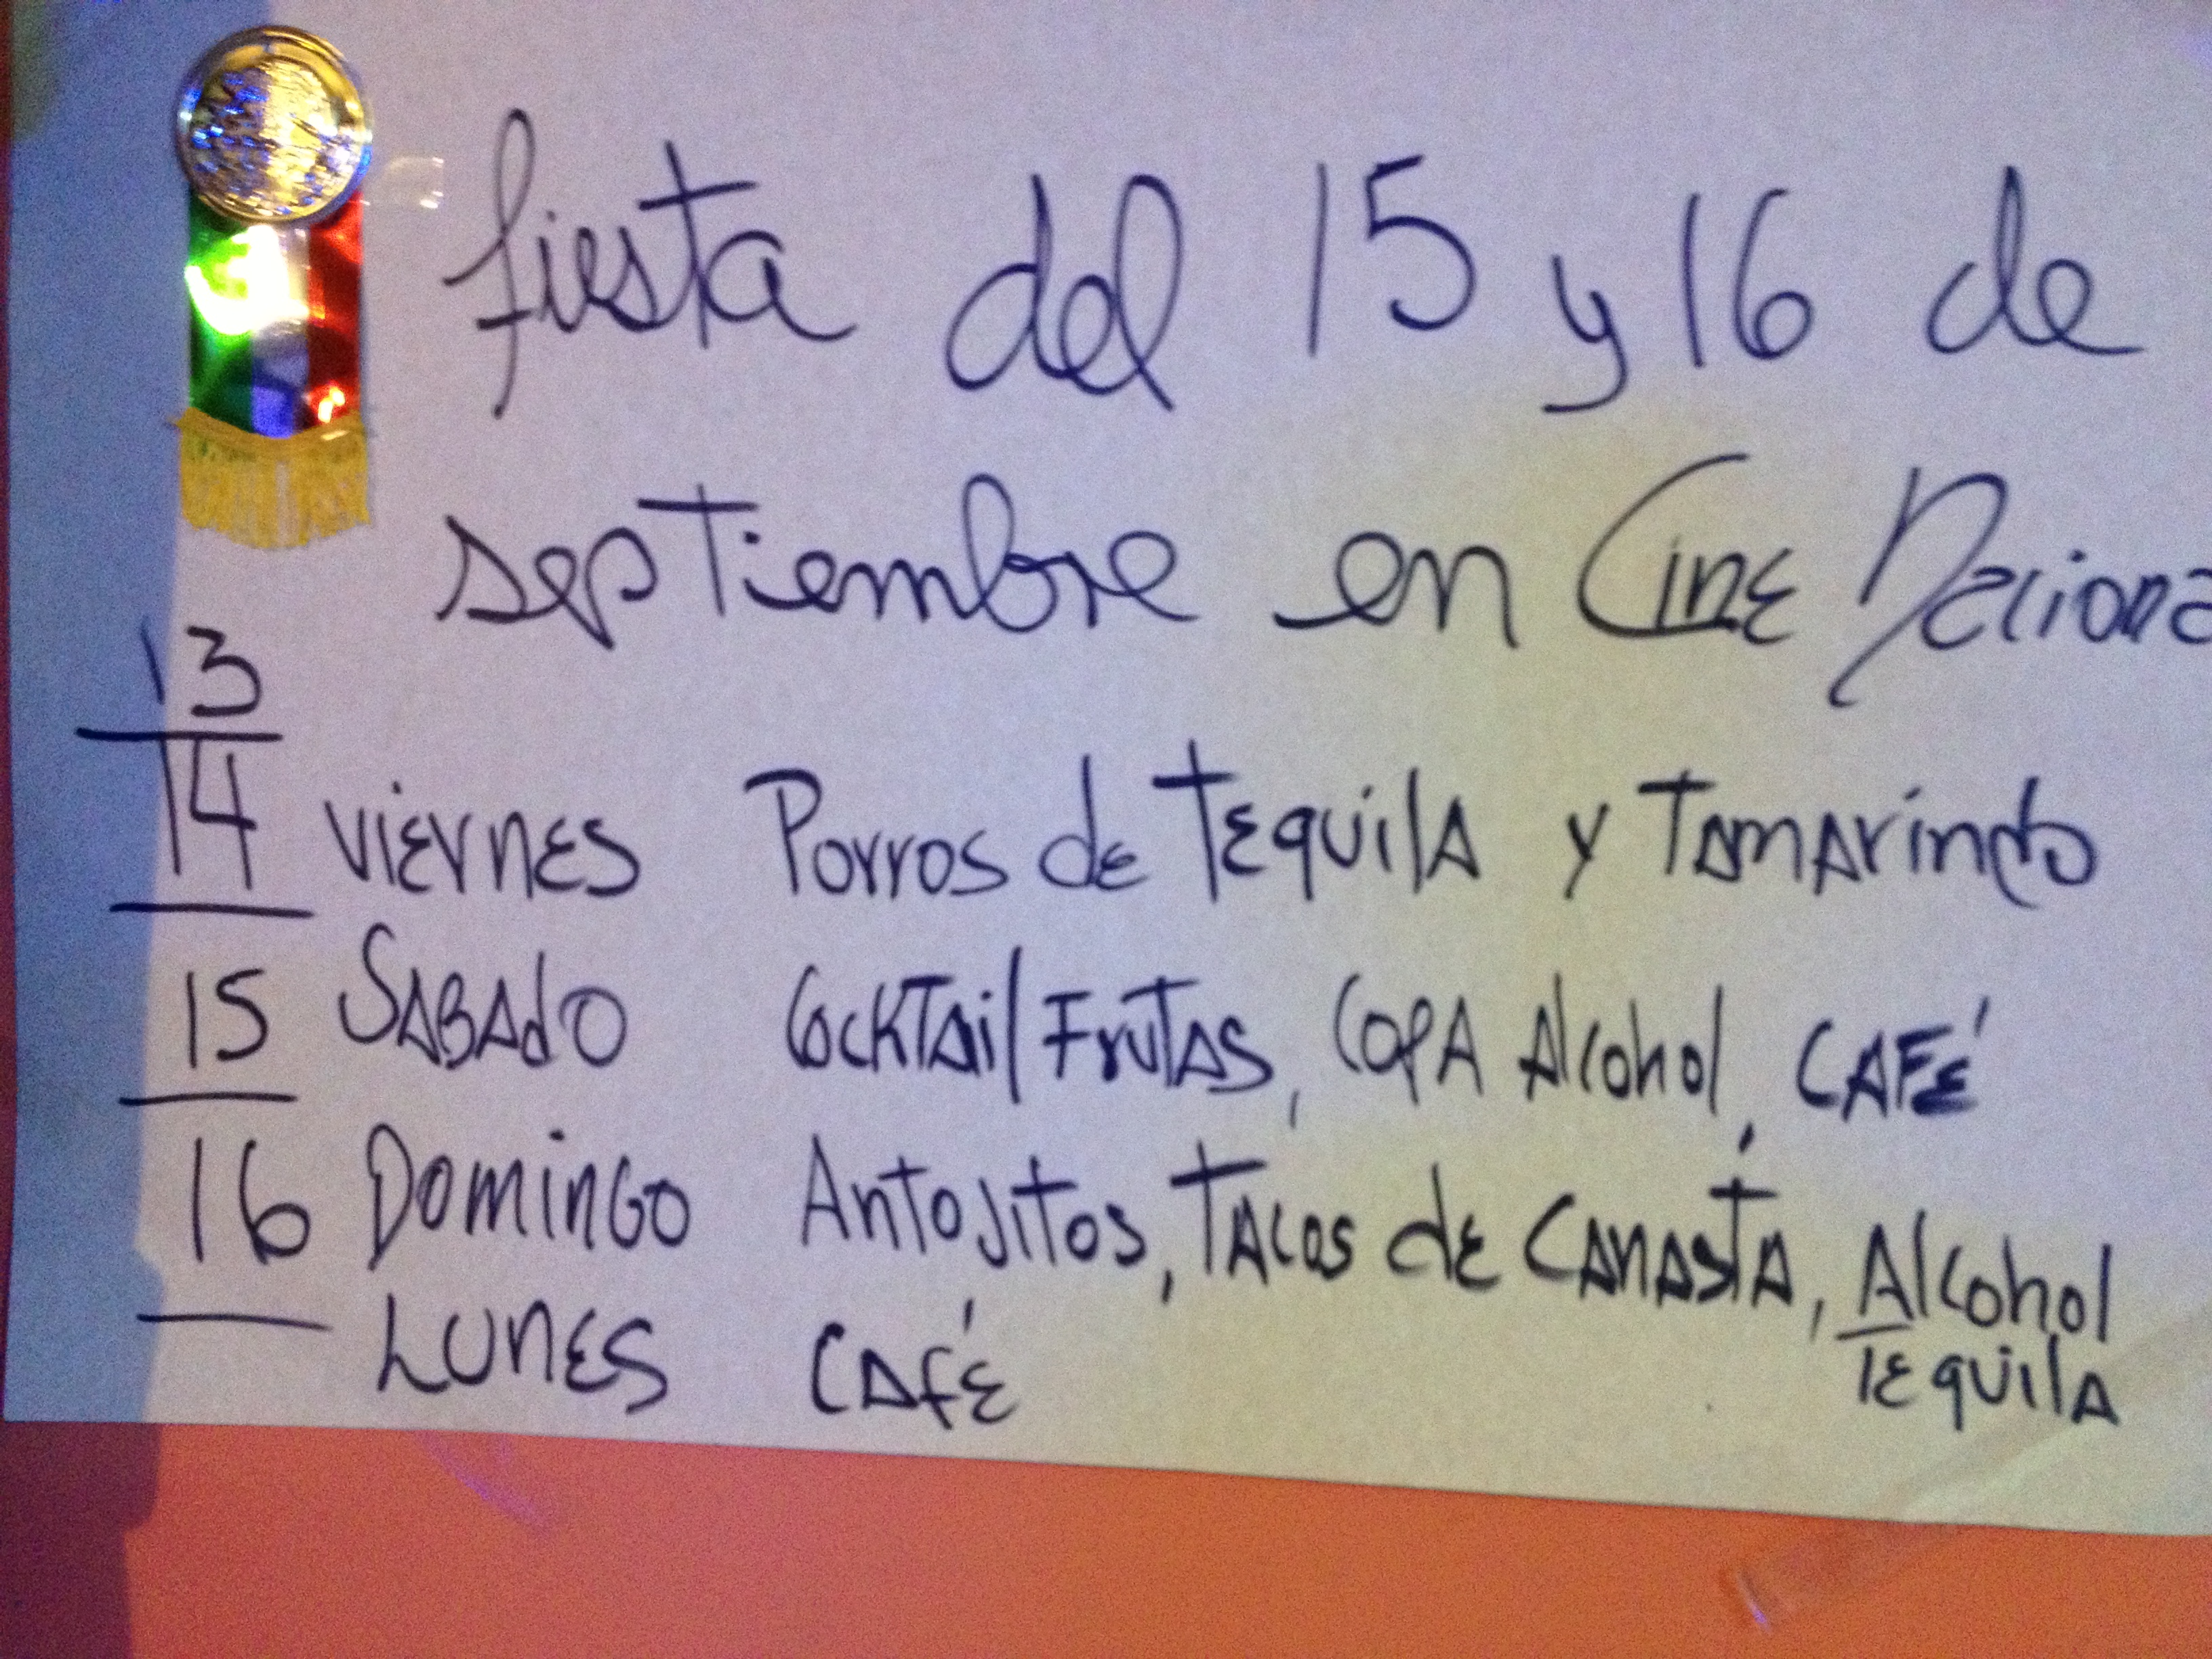 fiesta del 15 y 16 de
septiembre en Cine Naciona
13
14 Viernes Porros de Tequila y Tamarindo
15 Sabado Cocktail Frutas, Copa Alcohol, Café
16 Domingo Antojitos, Tacos de Canasta, Alcohol
Tequila
Lunes Café